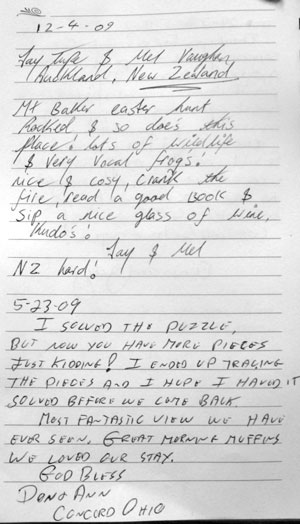 12-4-09
Jay Tyre & Mel Vaughan
Auckland, New Zealand
Mt Baker easter hunt
Rocked & so does this
place! lots of wildlife
& very vocal frogs.
nice & cosy, crank the
fire, read a good BOOK &
Sip a nice glass of wine.
Kudo's!
Jay & Mel
NZ hard!
5-23-09
I SOLVED THE PUZZLE,
BUT NOW YOU HAVE MORE PIECES
JUST KIDDING! I ENDED UP TRACING
THE PIECES AND I HOPE I HAVE IT
SOLVED BEFORE WE COME BACK
MOST FANTASTIC VIEW WE HAVE
EVER SEEN. GREAT MORNING MUFFINS
WE LOVED OUR STAY.
GOD BLESS
DON & ANN
CONCORD OHIO